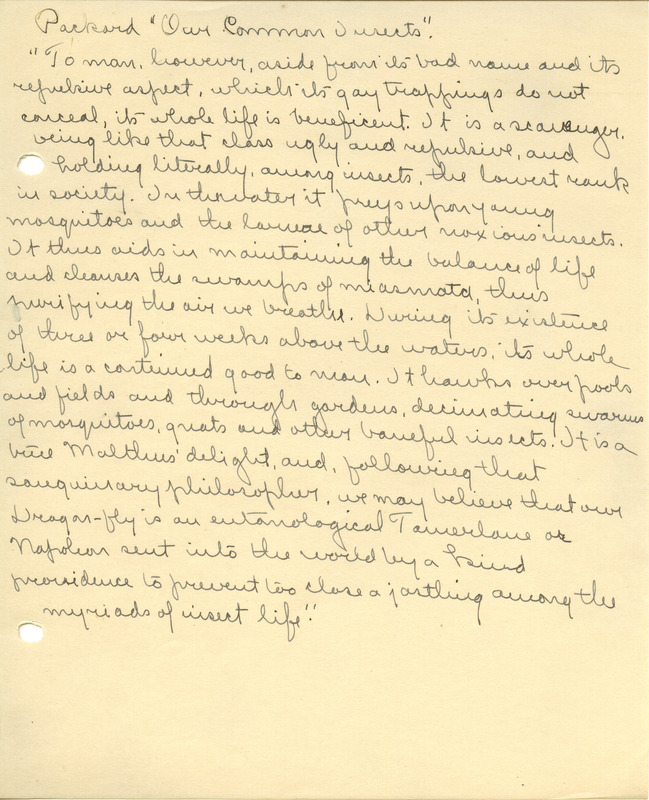 Packard "Our Common Insects".
"To man, however, aside from its bad name and its
repulsive aspect, which its gay trappings do not
conceal, its whole life is beneficent. It is a scavenger,
being like that class ugly and repulsive, and
holding literally, among insects, the lowest rank
in society. In the water it preys upon young
mosquitoes and the larvae of other noxious insects.
It thus aids in maintaining the balance of life
and cleanses the swamps of miasmata, thus
purifying the air we breathe. During its existence
of three or four weeks above the waters, its whole
life is a continued good to man. It hawks over pools
and fields and through gardens, decimating swarms
of mosquitoes, gnats and other baneful insects. It is a
true Malthus' delight, and, following that
sanguinary philosopher, we may believe that our
Dragon-fly is an entomological Tamerlane or
Napoleon sent into the world by a kind
providence to prevent too close a jostling among the
myriads of insect life."